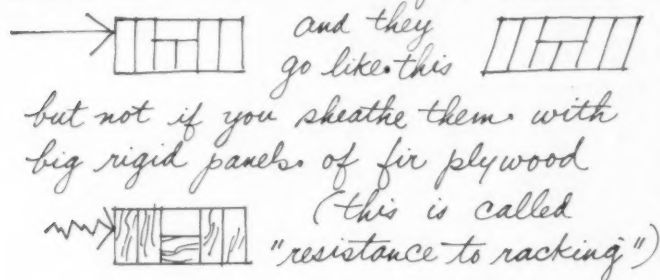 and they
go like this
but not if you sheathe them with
big rigid panels of fir plywood
(this is called
"resistance to racking")